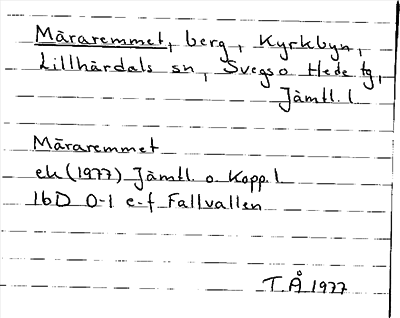 Måraremmet, berg, Kyrkbyn,
Lillhärdals sn, Svegs o Hede tg,
Jämtl. l
Måraremmet
ek (1977) Jämtl. o Kopp. l
16D 0-1 e-f Fallvallen
T.Å 1977